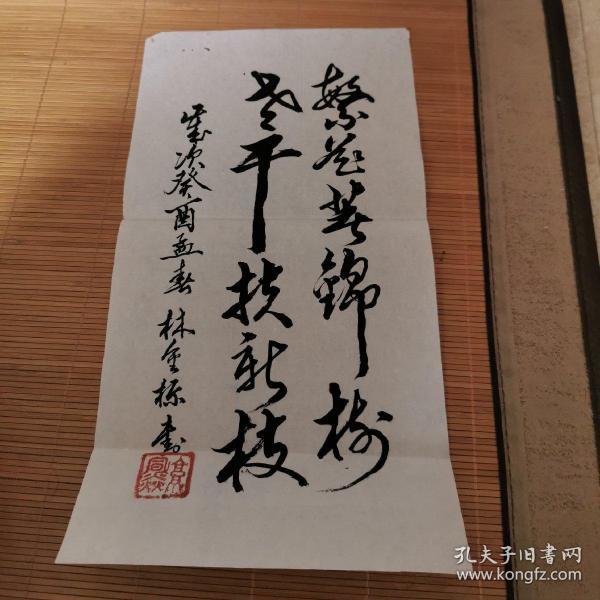 繁花錦樹
老平扶新枝
歲次癸酉孟春 林金標書
孔夫子旧書网
www.kongfz.com